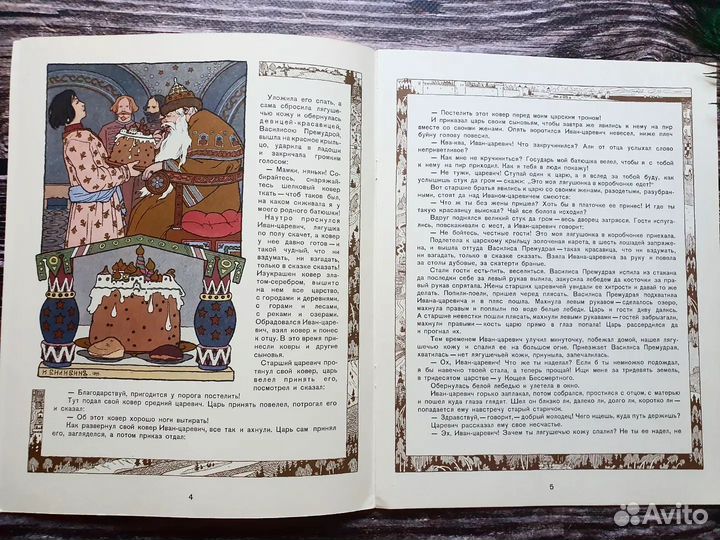 Уложила его спать, а
сама сбросила лягушечью
кожу и обернулась
девицей-красавицей,
Василисою Премудрой,
вышла на красное крыльцо,
ударила в ладоши
и закричала громким
голосом:
— Мамки, няньки! Собирайтесь,
снаряжайтесь
шелковый ковер
ткать — чтоб был таков,
на каком сиживала я у
моего родного батюшки!
Наутро проснулся
Иван-царевич, лягушка
по полу скачет, а ковер
у нее давно готов — и
такой чудный, что ни
вздумать, ни взгадать,
только в сказке сказать!
Изукрашен ковер златом-серебром,
вышито
на нем все царство,
с городами и деревнями,
с горами и лесами,
с реками и озерами.
Обрадовался Иван-царевич,
взял ковер и понес
к отцу. В это время
принесли ковры и другие
сыновья.
Старший царевич простянул
свой ковер, царь
велел принять его,
посмотрел и сказал:
— Благодарствуй, пригодится у порога постелить!
Тут подал свой ковер средний царевич. Царь принять повелел, потрогал его
и сказал:
— Об этот ковер хорошо ноги вытирать!
Как развернул свой ковер Иван-царевич, все так и ахнули. Царь сам принял
его, загляделся, а потом приказ отдал:
4
И БИЛИБИНЪ
— Постелить этот ковер перед моим царским троном!
И приказал царь своим сыновьям, чтобы завтра же явились к нему на пир
вместе со своими женами. Опять воротился Иван-царевич невесел, ниже плеч
буйну голову повесил.
— Ква-ква, Иван-царевич! Что закручинился? Али от отца услыхал слово
неприветливое?
— Как мне не кручиниться! Государь мой батюшка велел, чтобы я с тобой
к нему на пир приходил. Как я тебя в люди покажу!
— Не тужи, царевич! Ступай один к царю, а я вслед за тобой буду, как
услышишь стук да гром — скажи: „Это моя лягушонка в коробчонке едет!"
Вот старшие братья явились к царю со своими женами, разодетыми, разубранными,
стоят да над Иваном-царевичем смеются.
— Что ж ты без жены пришел? Хоть бы в платочке ее принес! И где ты
такую красавицу выискал? Чай все болота исходил!
Вдруг поднялся великий стук да гром — весь дворец затрясся. Гости испугались,
повскакивали с мест, а Иван-царевич говорит:
— Не бойтесь, честные гости! Это моя лягушонка в коробчонке приехала.
Подлетела к царскому крыльцу золоченая карета, в шесть лошадей запряжена,
и вышла оттуда Василиса Премудрая — такая красавица, что ни вздумать,
ни взгадать, только в сказке сказать. Взяла Ивана-царевича за руку и повела
за столы дубовые, за скатерти браные.
Стали гости есть-пить, веселиться. Василиса Премудрая испила из стакана
да последки себе за левый рукав вылила, закусила лебедем да косточки за правый
рукав спрятала. Жены старших царевичей увидали ее хитрости и давай то же
делать. Попили-поели, пришел черед плясать. Василиса Премудрая подхватила
Ивана-царевича и в пляс пошла. Махнула левым рукавом — сделалось озеро,
махнула правым и поплыли по воде белые лебеди. Царь и гости диву дались.
А старшие невестки пошли плясать, махнули левыми рукавами — гостей забрызгали,
махнули правыми — кость царю прямо в глаз попала! Царь рассердился да
и прогнал их с позором.
Тем временем Иван-царевич улучил минуточку, побежал домой, нашел лягушечью
кожу и спалил ее на большом огне. Приезжает Василиса Премудрая,
хватилась — нет лягушечьей кожи, приуныла, запечалилась.
— Ох, Иван-царевич! Что же ты наделал? Если б ты немножко подождал,
я бы навечно твоей стала, а теперь, прощай! Ищи меня за тридевять земель,
в тридесятом царстве — у Кощея Бессмертного.
Обернулась белой лебедью и улетела в окно.
Иван-царевич горько заплакал, потом собрался, простился с отцом, с матерью
и пошел куда глаза глядят. Шел он близко ли, далеко ли, долго ли, коротко ли —
попадается ему навстречу старый старичок.
— Здравствуй, — говорит, — добрый молодец! Чего ищешь, куда путь держишь?
Царевич рассказал ему свое несчастье.
— Эх, Иван-царевич! Зачем ты лягушечью кожу спалил? Не ты ее надел, не
5
Avito